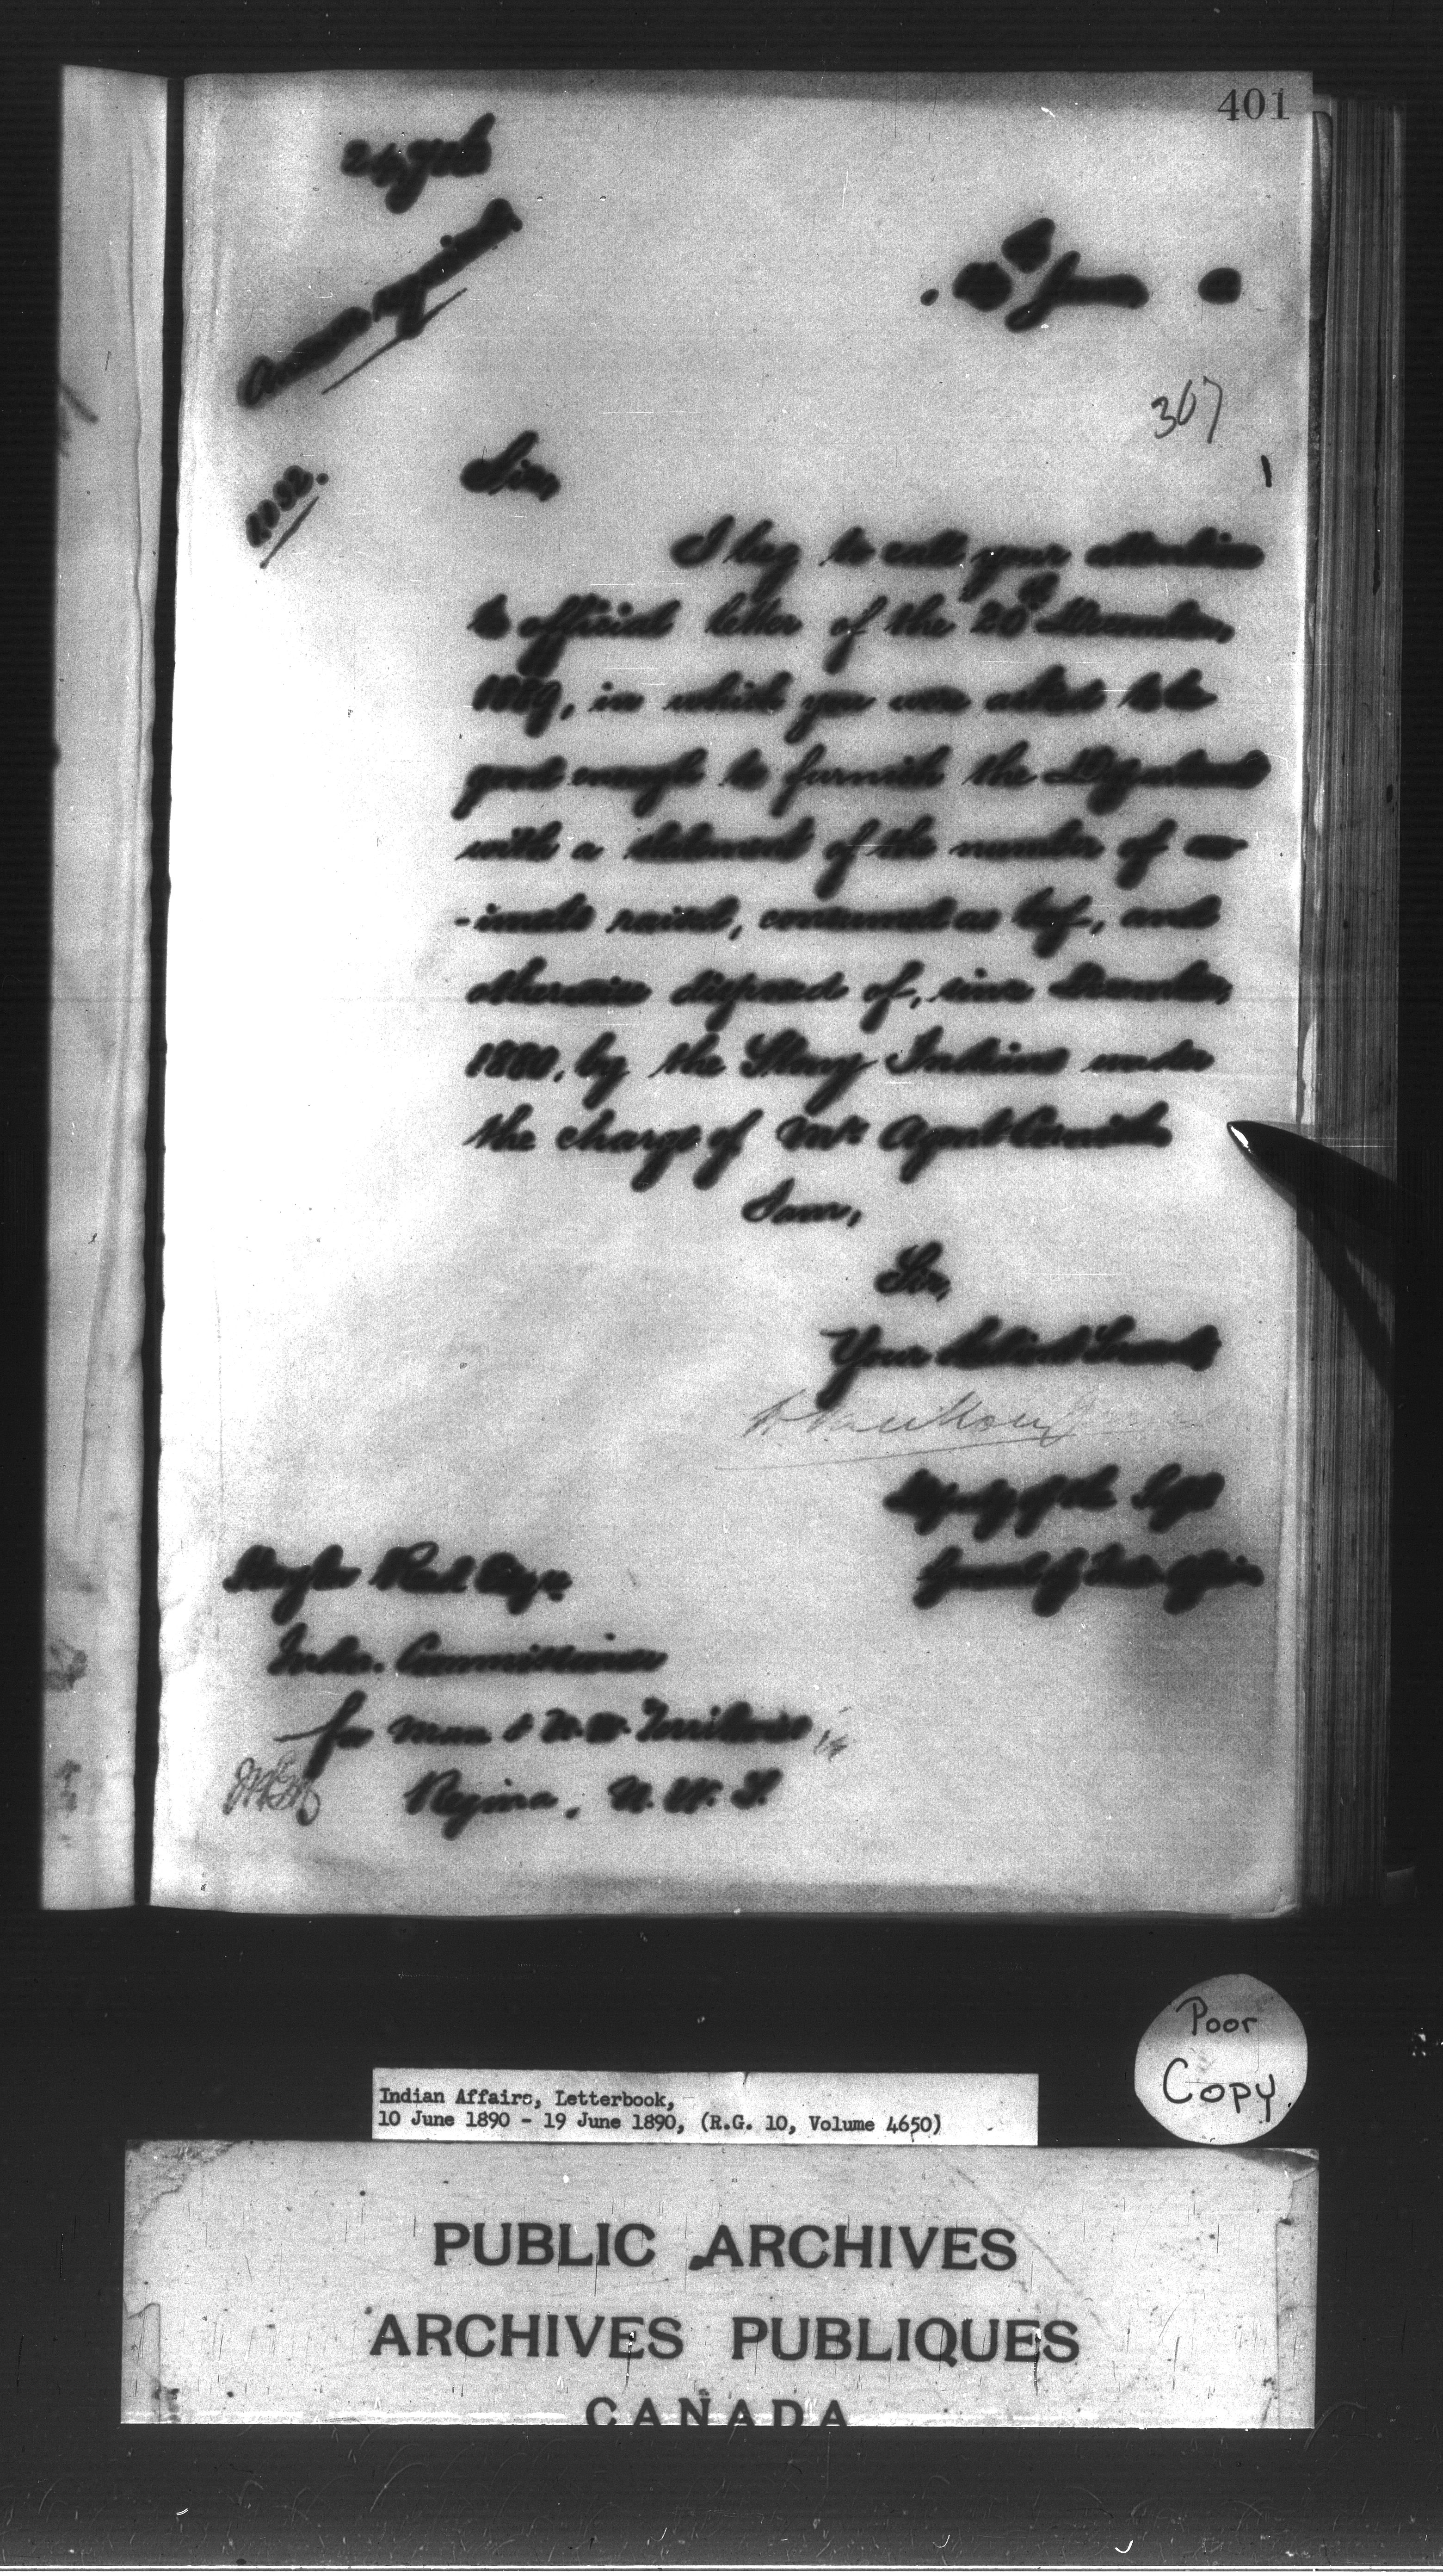 401
June
367
Sir,
I beg to call your attention
to official letter of the 20th December,
1889, in which you were asked to be
good enough to furnish the Department
with a statement of the number of an-
-imals raised, consumed as beef, and
otherwise disposed of, since December,
1880, by the Stony Indians under
the charge of Mr. Agent Cornish
I am,
Sir,
Your obedient Servant,
Deputy of the Supt
General of Indn Affairs
Hayter Reed Esqre
Indn. Commissioner
for Man. & N.W. Territories
Regina, N.W.T.
Poor
Copy
Indian Affairs, Letterbook,
10 June 1890 - 19 June 1890, (R.G. 10, Volume 4650)
PUBLIC ARCHIVES
ARCHIVES PUBLIQUES
CANADA